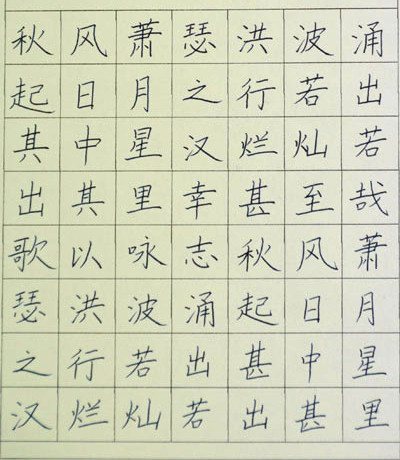 秋风萧瑟洪波涌
起日月之行若出
其中星汉烂灿若
出其里幸甚至哉
歌以咏志秋风萧
瑟洪波涌起日月
之行若出甚中星
汉烂灿若出甚里